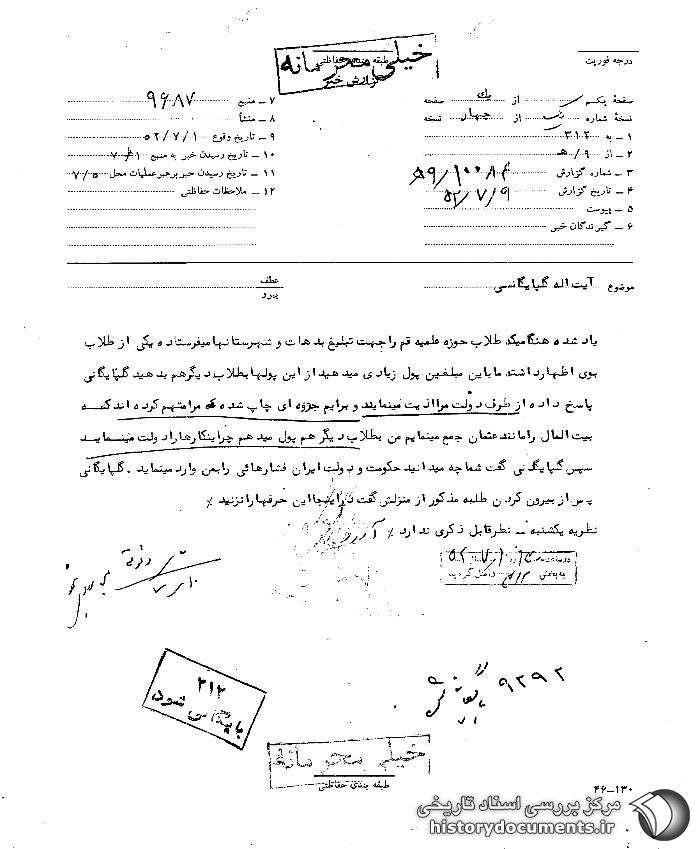 خیلی محرمانه
طبقه بندی حفاظتی
گزارش خبر
درجه فوریت
صفحه یکم از یک صفحه
نسخه شماره یک از چهار نسخه
۱ ـ به ۳۱۲
۲ ـ از ۹/هـ
۳ ـ شماره گزارش
۴ ـ تاریخ گزارش ۵۲/۷/۹
۵ ـ پیوست
۶ ـ گیرندگان خبر
۷ ـ منبع ۹۶۸۷
۸ ـ منشأ
۹ ـ تاریخ وقوع ۵۲/۷/۱
۱۰ ـ تاریخ رسیدن خبر به منبع
۱۱ ـ تاریخ رسیدن خبر برهبر عملیات محل ۷/۵
۱۲ ـ ملاحظات حفاظتی
موضوع آیت اله گلپایگانی
عطف
پیرو
یاد شده هنگامیکه طلاب حوزه علمیه قم را جهت تبلیغ بدهات و شهرستانها میفرستاده یکی از طلاب
بوی اظهار داشت ما باین مبلغین پول زیادی میدهید از این پولها بطلاب دیگر هم بدهید گلپایگانی
پاسخ داده از طرف دولت مرا اذیت مینمایند و برایم جزوه ای چاپ شده که مرا متهم کرده اند که
بیت المال را مانند عثمان جمع مینمایم من بطلاب دیگر هم پول میدهم چرا اینکارها را دولت مینماید
سپس گلپایگانی گفت شما چه میدانید حکومت و دولت ایران فشارهائی را بمن وارد مینماید . گلپایگانی
پس از بیرون کردن طلبه مذکور از منزلش گفت در اینجا این حرفها را نزنید ٪
نظریه یکشنبه ـ نظر قابل ذکری ندارد ٪
به بخش ۳۱۲ واصل گردید
۷/۱۰
بایگانی شود ۹۲۹۲
۳۱۲
بایگانی شود
خیلی محرمانه
طبقه بندی حفاظتی
۴۶-۱۳۰
مرکز بررسی اسناد تاریخی
historydocuments.ir